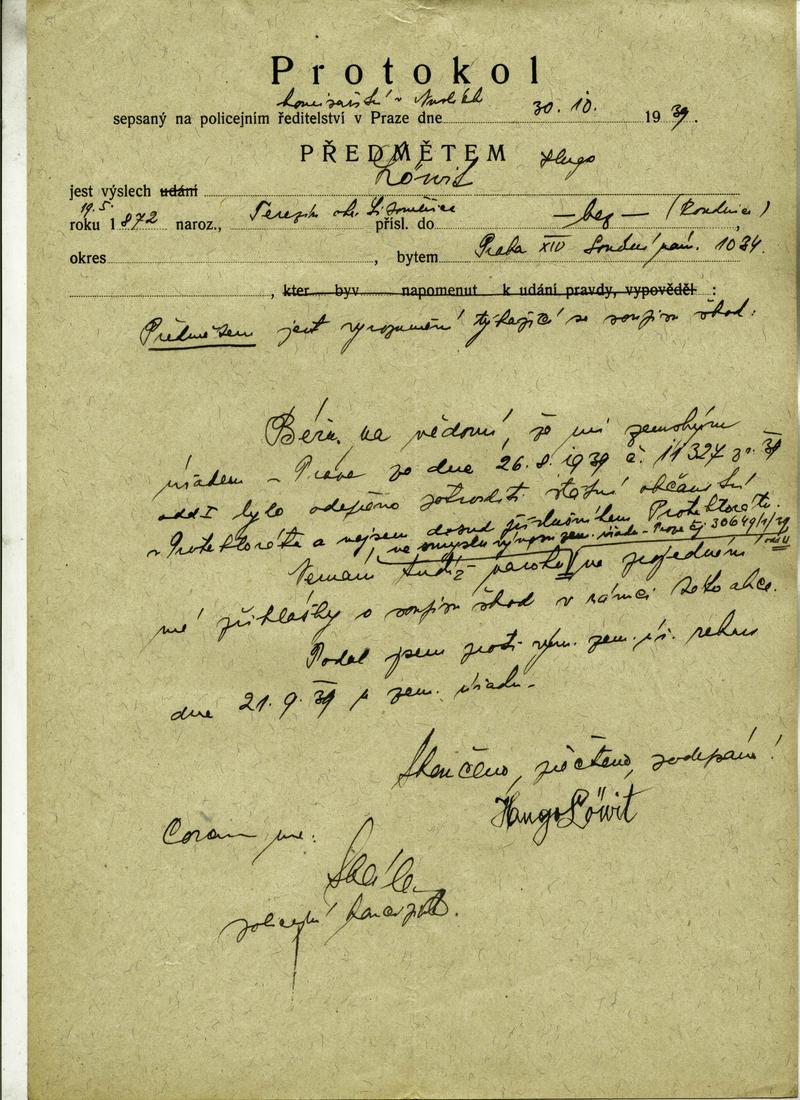 Protokol
komisařství v Nuslích
sepsaný na policejním ředitelství v Praze dne 30. 10. 1939.
PŘEDMĚTEM
jest výslech udání Löwit Hugo
19.5.
roku 1872 naroz., Terezín okr. Litoměřice přísl. do — bez — (Roudnice)
okres , bytem Praha XIV Londýn. 1034.
, kter byv napomenut k udání pravdy, vypověděl :
Předmětem jest vyrozumění týkající se soupisu škod:
Béru na vědomí, že mi zemským
úřadem v Praze ze dne 26.8.1939 č. 11327 39
odd I bylo odepřeno potvrditi státní občanství
v Protektorátu a nejsem dosud příslušníkem Protektorátu.
ve smyslu výnosu zem. úřadu v Praze čj. 30649/1/39
Nemám tudíž nároku na projednání
mé přihlášky o soupisu škod v rámci této akce.
Podal jsem proti výn. zem. úř. rekurs
dne 21. 9. 39 u zem. úřadu.
Skončeno, přečteno, podepsáno!
Hugo Löwit
Coram me:
Skála
policejní